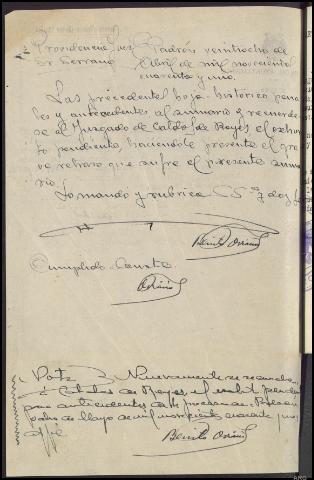 Providencia Juez Padrón veintiocho de
Sr Serrano Abril de mil novecientos
cuarenta y uno.
Las precedentes hojas histórico pena
les y antecedentes al sumario y recuerde
se al Juzgado de Caldas de Reyes el exhor
to pendiente, haciéndole presente el gra
ve retraso que sufre el presente suma
rio.
Lo mando y rubrica S Sª doy fe
Benito
Cumplido. Consta.
Nota Nuevamente se recuerda
á Caldas de Reyes el exhorto pendien
antecedentes de
de Mayo de mil novecientos cuarenta y uno
Benito